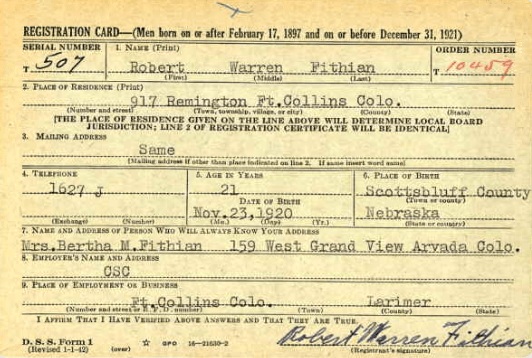 REGISTRATION CARD—(Men born on or after February 17, 1897 and on or before December 31, 1921)
SERIAL NUMBER 1. NAME (Print) ORDER NUMBER
T 507 Robert Warren Fithian T 10459
(First) (Middle) (Last)
2. PLACE OF RESIDENCE (Print)
917 Remington Ft.Collins Colo.
(Number and street) (Town, township, village, or city) (County) (State)
[THE PLACE OF RESIDENCE GIVEN ON THE LINE ABOVE WILL DETERMINE LOCAL BOARD
JURISDICTION; LINE 2 OF REGISTRATION CERTIFICATE WILL BE IDENTICAL]
3. MAILING ADDRESS
Same
[Mailing address if other than place indicated on line 2. If same insert word same]
4. TELEPHONE 5. AGE IN YEARS 6. PLACE OF BIRTH
1627 J 21 Scottsbluff County
DATE OF BIRTH (Town or county)
Nov.23,1920 Nebraska
(Exchange) (Number) (Mo.) (Day) (Yr.) (State or country)
7. NAME AND ADDRESS OF PERSON WHO WILL ALWAYS KNOW YOUR ADDRESS
Mrs.Bertha M.Fithian 159 West Grand View Arvada Colo.
8. EMPLOYER'S NAME AND ADDRESS
CSC
9. PLACE OF EMPLOYMENT OR BUSINESS
Ft.Collins Colo. Larimer
(Number and street or R. F. D. number) (Town) (County) (State)
I AFFIRM THAT I HAVE VERIFIED ABOVE ANSWERS AND THAT THEY ARE TRUE.
Robert Warren Fithian
D. S. S. Form 1 GPO 16—21630-2
(Revised 1-1-42) (over) (Registrant's signature)